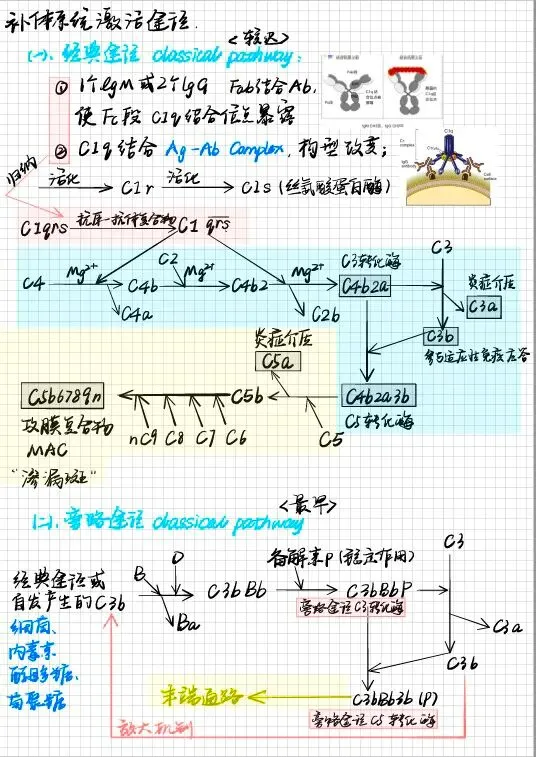 补体系统激活途径.
<较迟>
(一). 经典途径 classical pathway:
① 1个IgM或2个IgG Fab结合Ab,
使Fc段 C1q结合位点暴露
② C1q结合 Ag-Ab Complex, 构型改变;
归纳
活化 C1r 活化 C1s (丝氨酸蛋白酶)
C1qrs 抗原-抗体复合物 C1 qrs
C4 Mg2+ C4b C2 Mg2+ C4b2 Mg2+ C3转化酶 C4b2a C3
C4a C2b 炎症介质 C3a
C3b
参与适应性免疫应答
炎症介质
C5a
C5b6789n C5b C4b2a3b
攻膜复合物 nC9 C8 C7 C6 C5 C5转化酶
MAC
"渗漏斑"
<最早>
(二). 旁路途径 classical pathway
经典途径或
自发产生的C3b
B D C3bBb 备解素P (稳定作用) C3bBbP C3
Ba 旁路途径C3转化酶 C3a
细菌、
内毒素
酵母多糖、
葡聚糖
C3b
末端通路 C3bBb3b (P)
放大机制 旁路途径C5转化酶